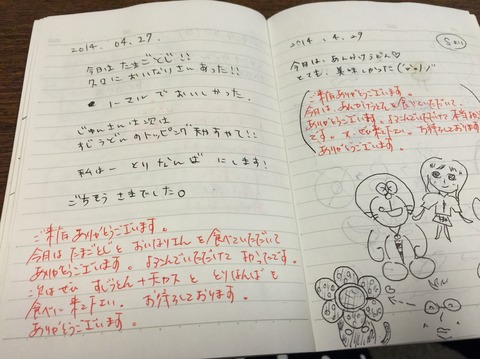 2014. 04. 27.
今日は たまごとじ!!
久々に おいなりさん あった!!
ノーマルで おいしかった。
じゅんさんは 次は
すじうどんのトッピング 天かすやて!!
私は とりなんば にします!
ごちそうさまでした。
ご来店ありがとうございます。
今日は たまごとじと おいなりさんを食べていただいて
ありがとうございます。 よろこんでいただけて 和らったです。
次はぜひ すじうどん+天カスと とりなんばを
食べに来て下さい。 お待ちしております。
ありがとうございます。
2014. 4. 29
今日は、あんかけうどん♡
とても、美味しかった
ご来店ありがとうございます。
今日は、あんかけうどんを食べていただいて、
ありがとうございます。よろこんでいただけて
です。又、ぜひ来て下さい。お待ちしております
ありがとうございます。